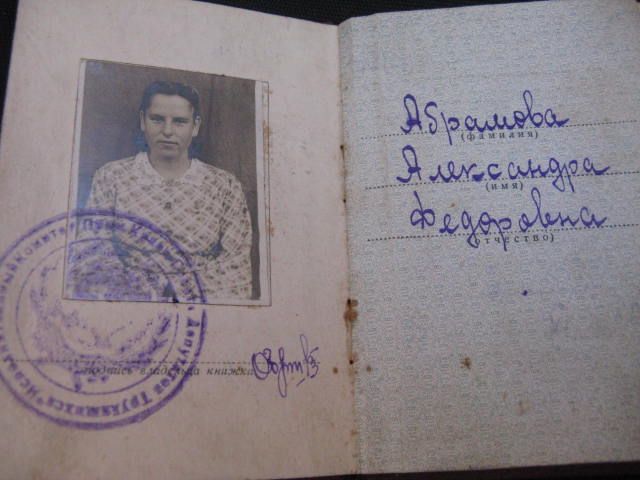 Исполнительный Комитет
Депутатов Трудящихся
подпись владельца книжки
Абрамова
(фамилия)
Александра
(имя)
Федоровна
(отчество)